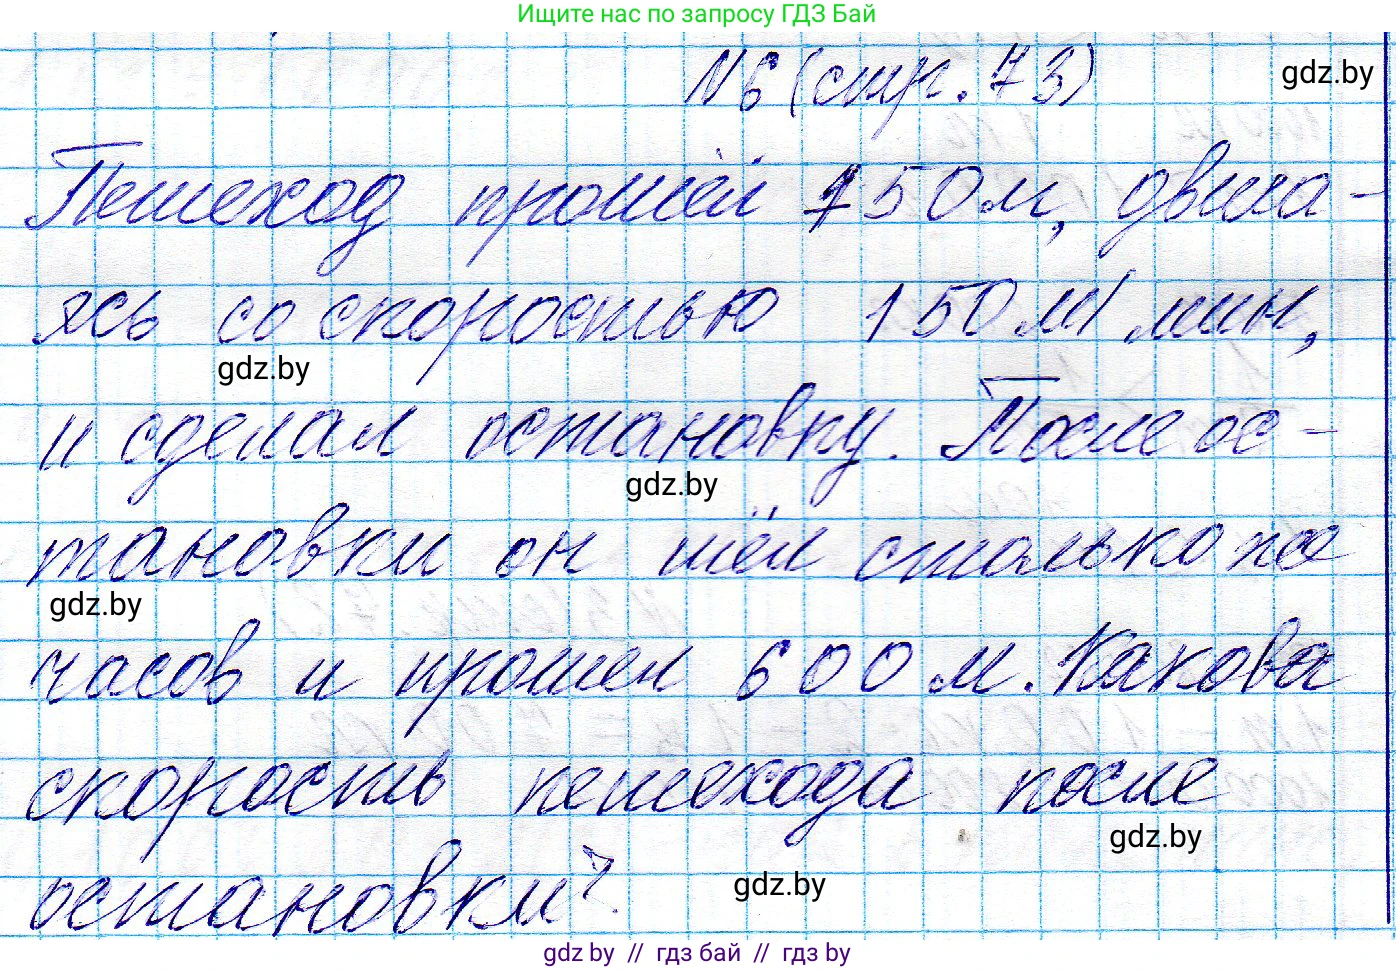 Ищите нас по запросу ГДЗ Бай
N6 (стр. 73)
gdz.by
Пешеход прошёл 750 м, двига-
ясь со скоростью 150 м/мин,
gdz.by
и сделал остановку. После ос-
gdz.by
тановки он шёл столько же
gdz.by
часов и прошел 600 м. Какова
скорость пешехода после
gdz.by
остановки?
gdz.by
gdz by // гдз бай // гдз by